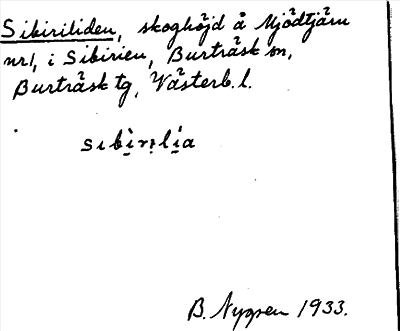 Sibiriliden, skoghöjd å Mjödtjärn
nr 1, i Sibirien, Burträsk sn,
Burträsk tg, Västerb. l.
sibìrịlị́a
B. Nygren 1933.